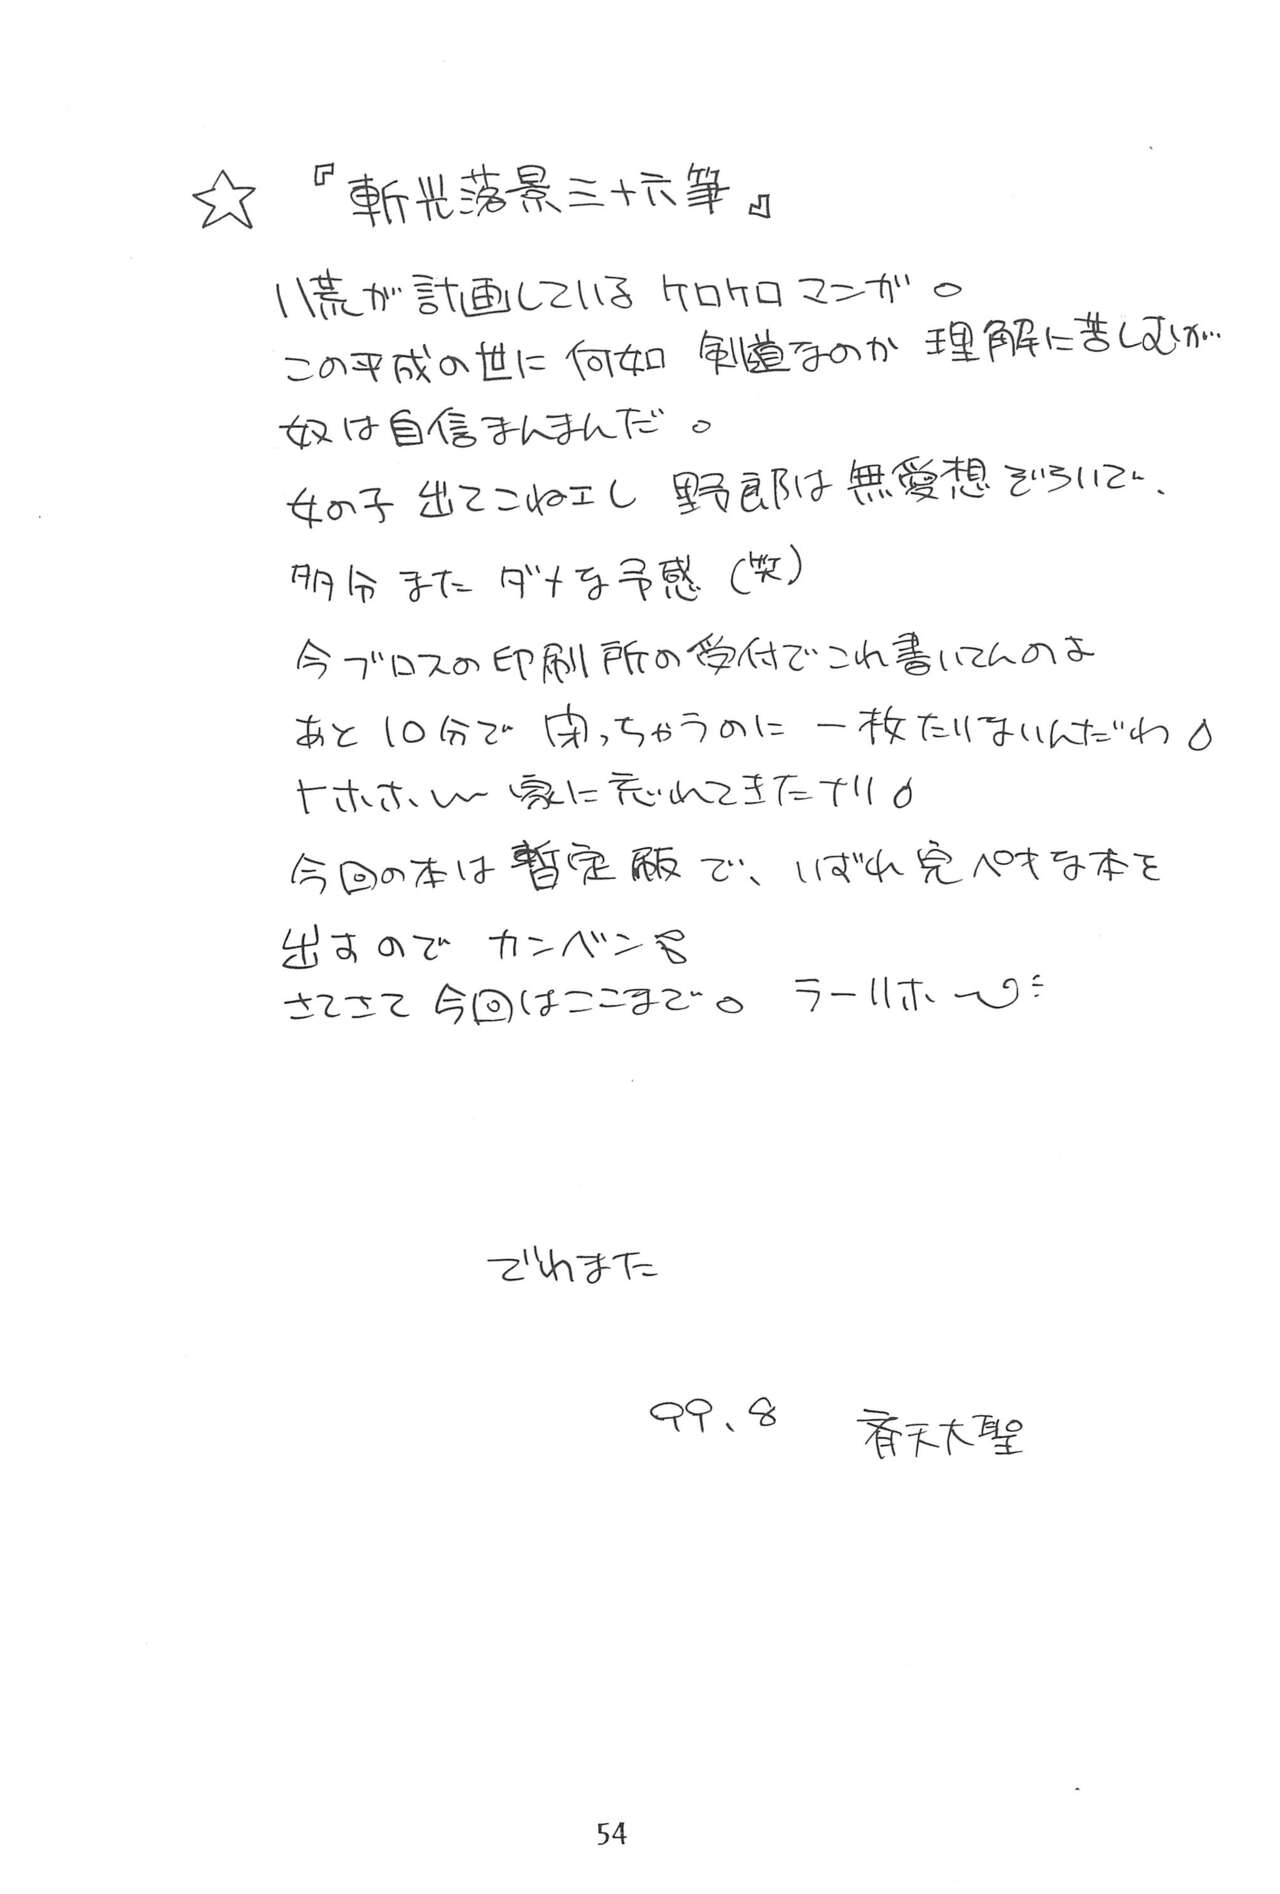 ☆ 『斬光落景三十六筆』
八荒が計画している ケロケロマンガ。
この平成の世に 何如 剣道なのか 理解に苦しむが…
奴は自信まんまんだ。
女の子 出てこねエし 野郎は無愛想ぞろいで、
多分 また ダメな予感(笑)
今ブロスの印刷所の受付でこれ書いてんのよ
あと10分で 閉っちゃうのに 一枚たりないんだわ
トホホ〜 家に忘れてきたナリ
今回の本は暫定版で、いずれ完ペキな本を
出すので カンベン
さてさて 今回はここまで。 ラーリホ〜
でわまた
99、8 斉天大聖
54